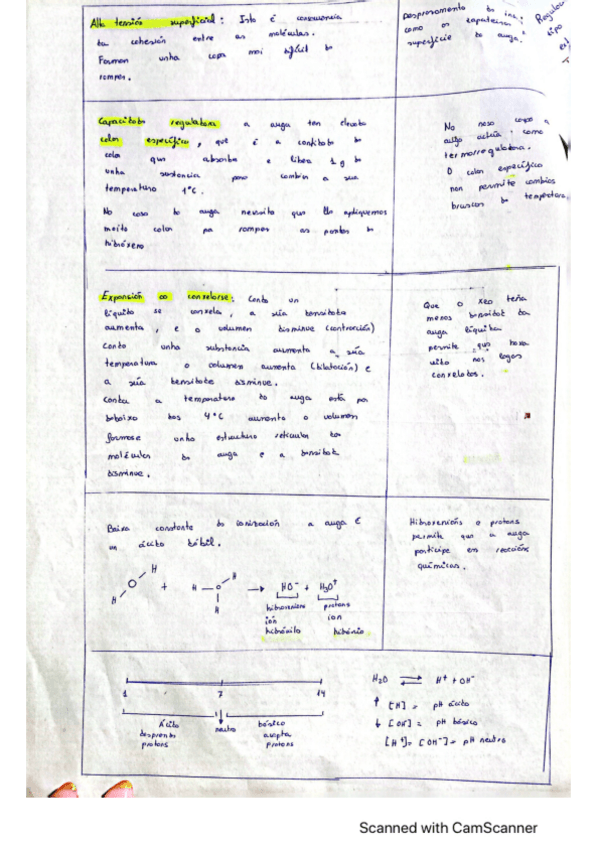 Alta tensión superficial: Isto é consecuencia
da cohesión entre as moléculas.
Forman unha capa moi difícil de
romper.
Desprazamento de
como os zapateiros
superficie da auga.
Regulou
tipo
Capacidade reguladora a auga ten elevado
calor específico, que é a cantidade de
calor que absorbe e libera 1 g de
unha sustancia para cambiar a súa
temperatura 1°C.
No caso da auga necesita que lle apliquemos
moito calor pa romper as pontes de
hidróxeno
No noso corpo a
auga actúa como
termorreguladora.
O calor específico
non permite cambios
bruscos de temperatura.
Expansión ao conxelarse: Cando un
líquido se conxela, a súa densidade
aumenta, e o volumen disminue (contracción)
Cando unha substancia aumenta a súa
temperatura o volumen aumenta (dilatación) e
a súa densidade disminue.
Cando a temperatura da auga está por
debaixo dos 4°C aumenta o volumen
formase unha estructura reticular de
moléculas de auga e a densidade
disminue.
Que o xeo teña
menos densidade da
auga líquida
permite que haxa
vida nos lagos
conxelados.
Baixa constante de ionización a auga é
un ácido débil.
H O H + H O H H → HO⁻ + H₃O⁺
ión ion
hidróxilo hidronio
Hidroxenións o protons
permite que a auga
participe en reaccións
químicas.
1 7 14
Ácido neutro básico
desprende acepta
protons protons
H₂O ⇌ H⁺ + OH⁻
↑ [H] = pH ácido
↓ [OH] = pH básico
[H⁺] = [OH⁻] = pH neutro
Scanned with CamScanner